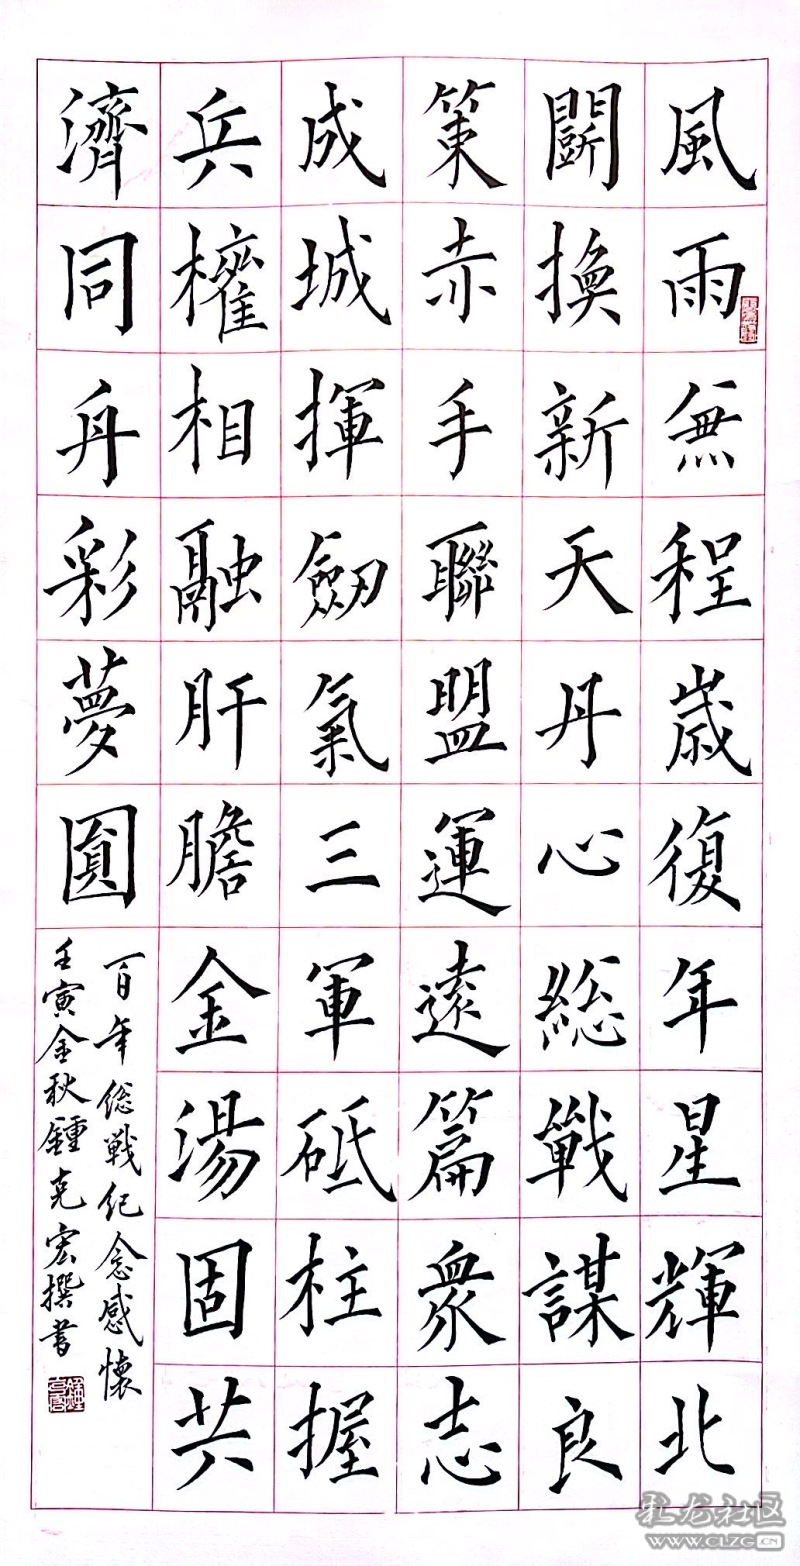 風雨無程歲復年星輝北
鬭換新天丹心総戰謀良
策赤手聯盟運遠篇衆志
成城揮劒氣三軍砥柱握
兵權相融肝膽金湯固共
濟同舟彩夢圓
百年総戰纪念感懷
壬寅金秋鍾克宏撰書
龙社区
WWW.CLZG.CN